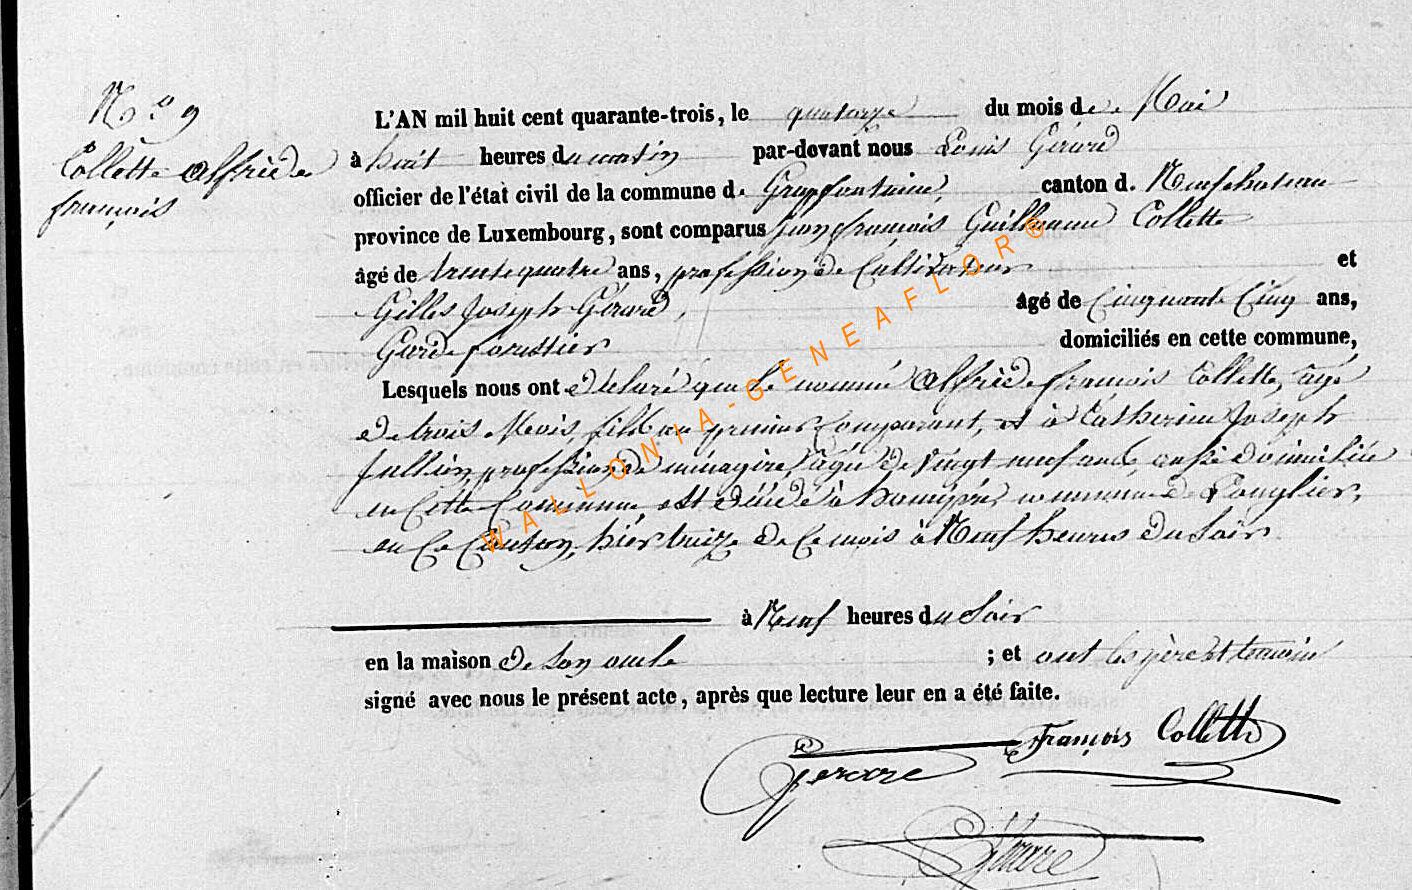 N.o 9
Collette alfrède
françois
L'AN mil huit cent quarante-trois, le quatorze du mois de Mai
à huit heures du matin par-devant nous Louis Gérard
officier de l'état civil de la commune de Grapfontaine, canton d. Neufchateau
province de Luxembourg, sont comparus jean françois Guillaume Collette
âgé de trente quatre ans, profession de Cultivateur et
Gilles Joseph Gérard, âgé de Cinquante Cinq ans,
Garde forestier domiciliés en cette commune,
Lesquels nous ont déclaré que le nommé alfrède françois Collette, agé
de trois Mois, fils au premier Comparant, et à Catherine Joseph
profession de ménagère, agée de Vingt neuf ans, aussi domiciliée
en Cette Commune, est décédé à commune de Longlier,
en Ce Canton, hier treize de Ce mois à Neuf heures du Soir
à Neuf heures du Soir
en la maison de son oncle ; et ont les père et temoin
signé avec nous le présent acte, après que lecture leur en a été faite.
François Collette
Gerard
Gérard
WALLONIA-GENEAFLOR®